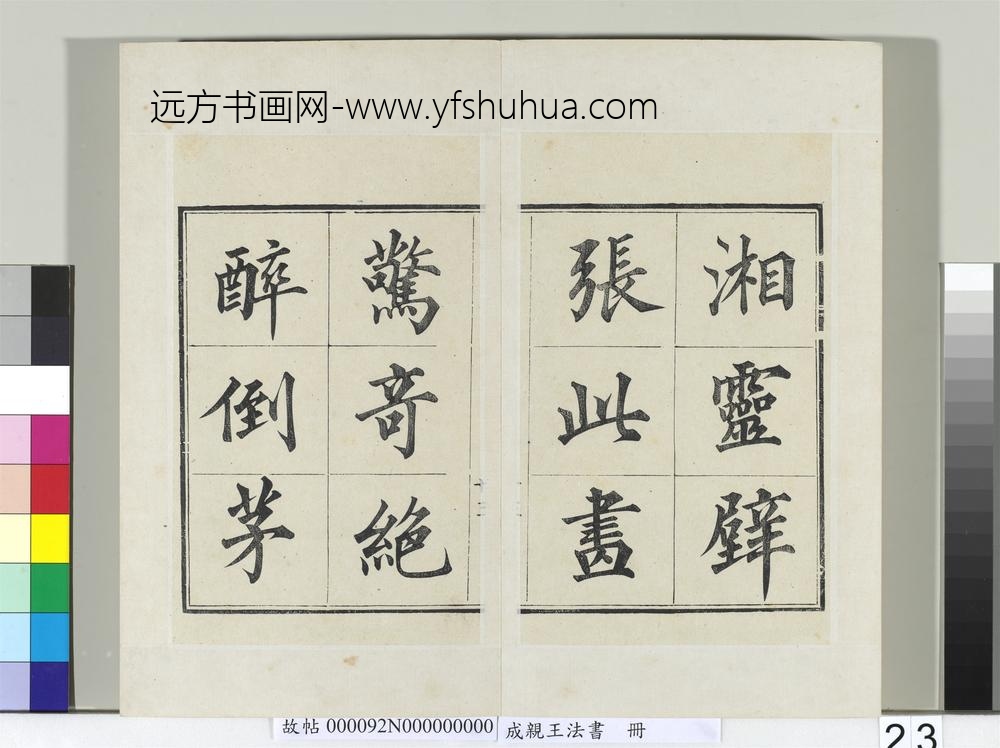 远方书画网-www.yfshuhua.com
湘靈璧
張此畵
驚竒絶
醉倒茅
故帖 000092N000000000
成親王法書 冊
23